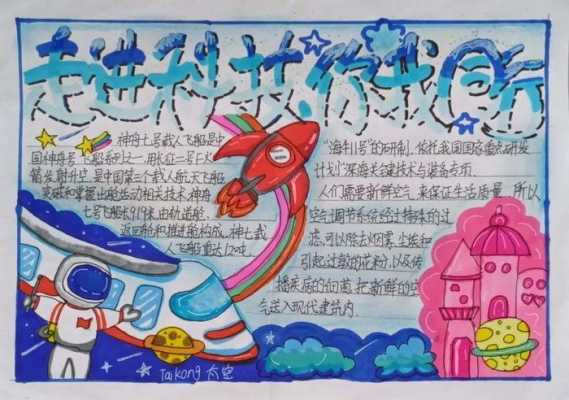 走进科技,你我同行
神舟七号载人飞船是中
国神舟号飞船系列之一,用长征二号F火
箭发射升空,是中国第三个载人航天飞船
突破和掌握出舱活动相关技术,神舟
七号飞船长9.19米,由轨道舱、
返回舱和推进舱构成,神七载
人飞船重达12吨。
"海牛Ⅱ号"的研制,依托我国国家重点研发
计划"深海关键技术与装备专项,
人们需要新鲜空气,来保证生活质量,所以
空气调节系统经过特殊的过
滤,可以除去烟雾、尘埃和
引起过敏的花粉,以及传
播疾病的细菌,把新鲜的空
气送入现代建筑内.
Taikong 太空